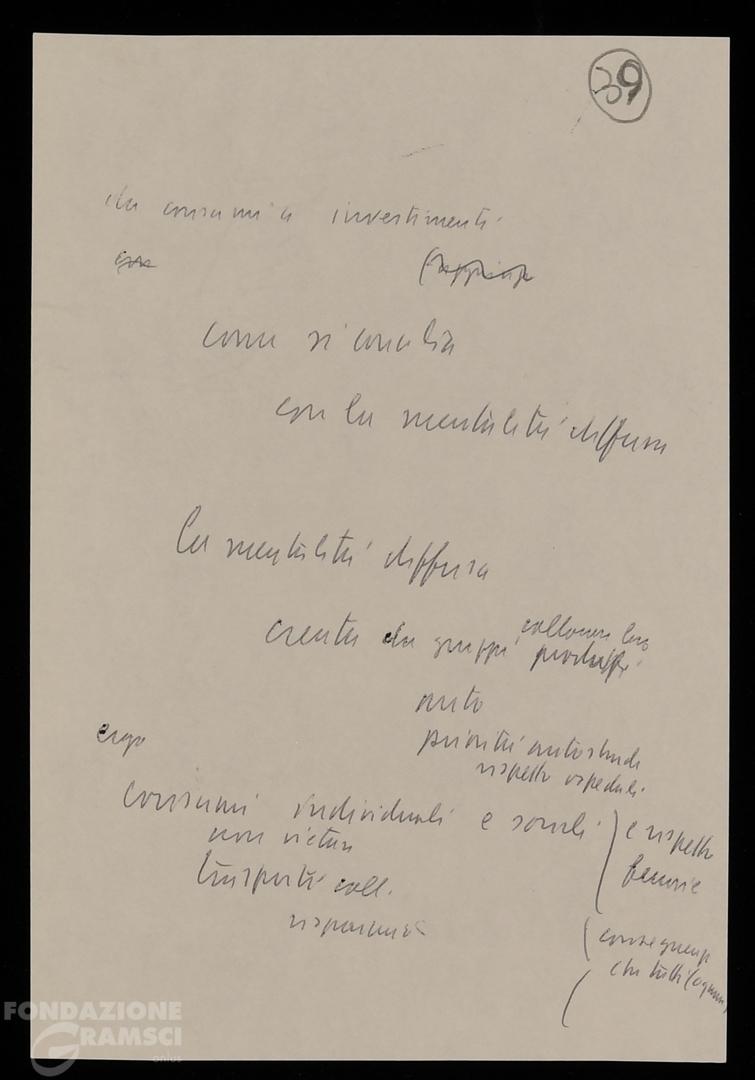 39
da consumi a investimenti
come si concilia
con la mentalità diffusa
la mentalità diffusa
creata da gruppi collocare loro
prodotti
auto
priorità autostrade
ergo
rispetto ospedali
consumi individuali e sociali e rispetto
non vietare
trasporti coll.
risparmio
conseguenze
che tutti (ognuno)
FONDAZIONE
GRAMSCI
onlus